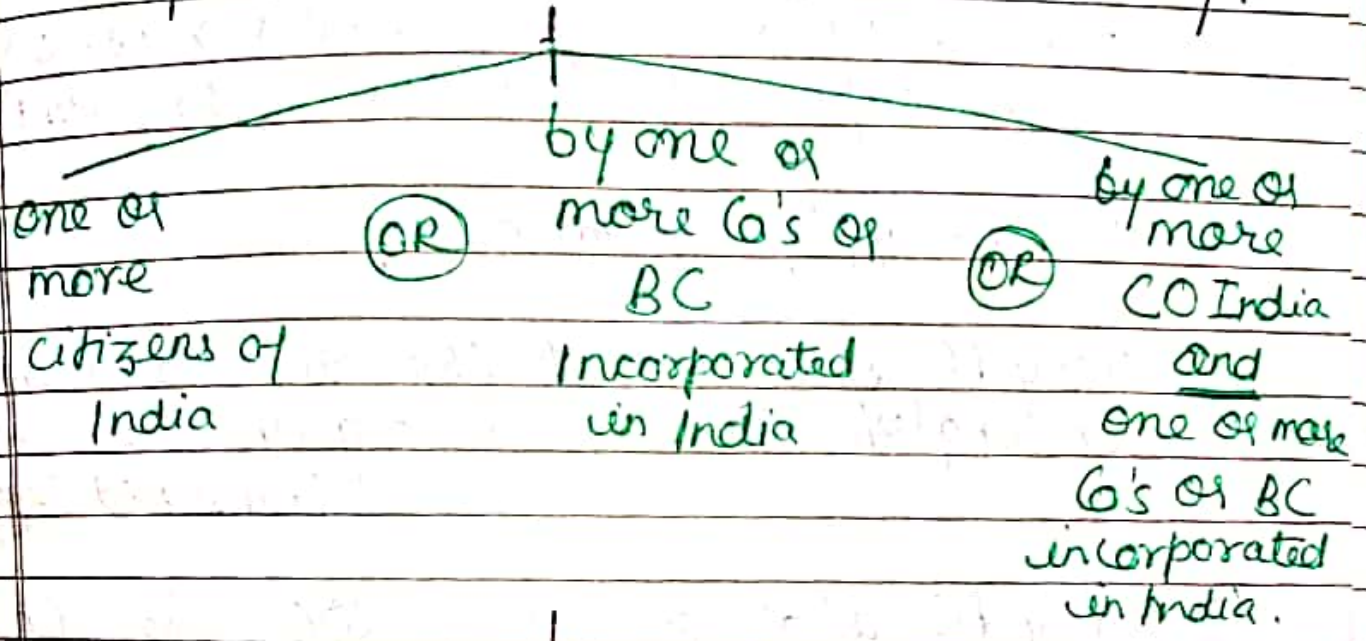 one or
more
citizens of
India
OR
by one or
more Co's or
BC
Incorporated
in India
OR
by one or
more
CO India
and
one or more
Co's or BC
incorporated
in India.